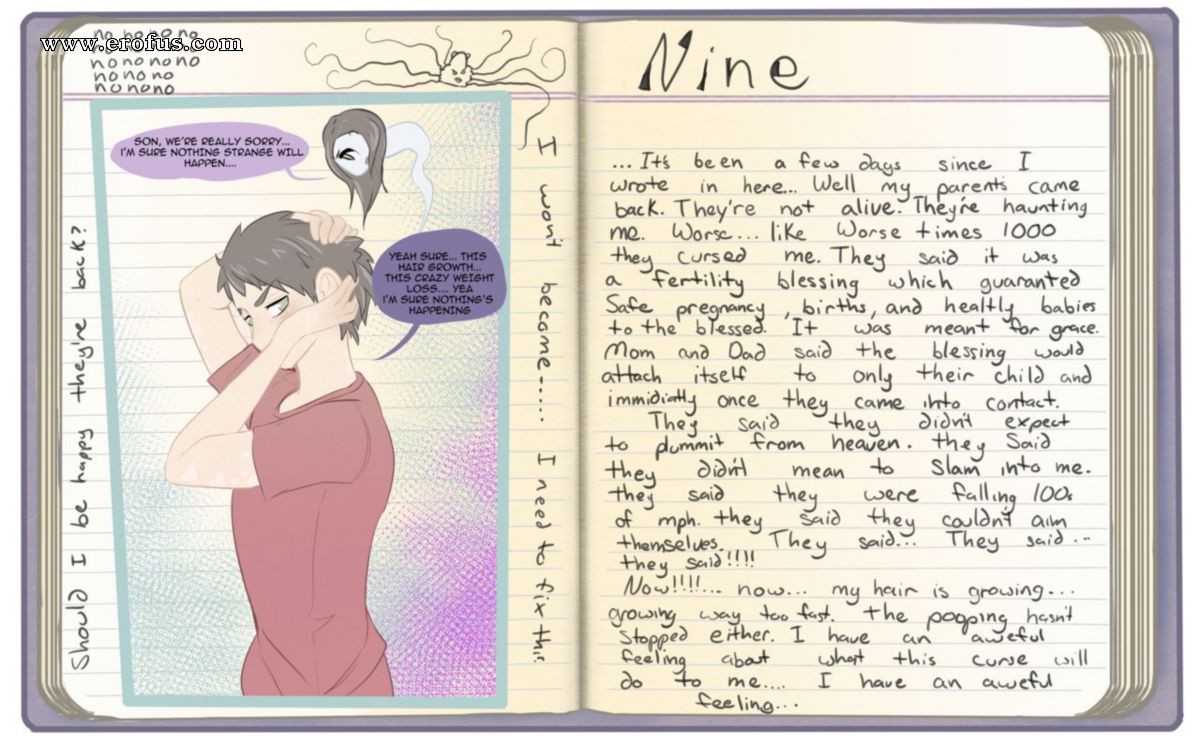 no no no no
www.erofus.com
no no no no no
no no no
no no no no
SON, WE'RE REALLY SORRY...
I'M SURE NOTHING STRANGE WILL
HAPPEN....
YEAH SURE... THIS
HAIR GROWTH...
THIS CRAZY WEIGHT
LOSS.... YEA
I'M SURE NOTHING'S
HAPPENING
Should I be happy they're back?
I won't become...... I need to fix this.
Nine
...It's been a few days since I
wrote in here... Well my parents came
back. They're not alive. They're haunting
me. Worse... like Worse times 1000
they cursed me. They said it was
a fertility blessing which guaranted
Safe pregnancy, births, and healtly babies
to the blessed. It was meant for grace.
Mom and Dad said the blessing would
attach itself to only their child and
immidiatly once they came into contact.
They said they didn't expect
to plummit from heaven. they Said
they didn't mean to Slam into me.
they said they were falling 100s
of mph. they said they couldn't aim
themselves. They said... They said...
they said!!!!
Now!!!!... now... my hair is growing...
growing way too fast. the pooping hasn't
Stopped either. I have an aweful
feeling about what this curse will
do to me.... I have an aweful
feeling...